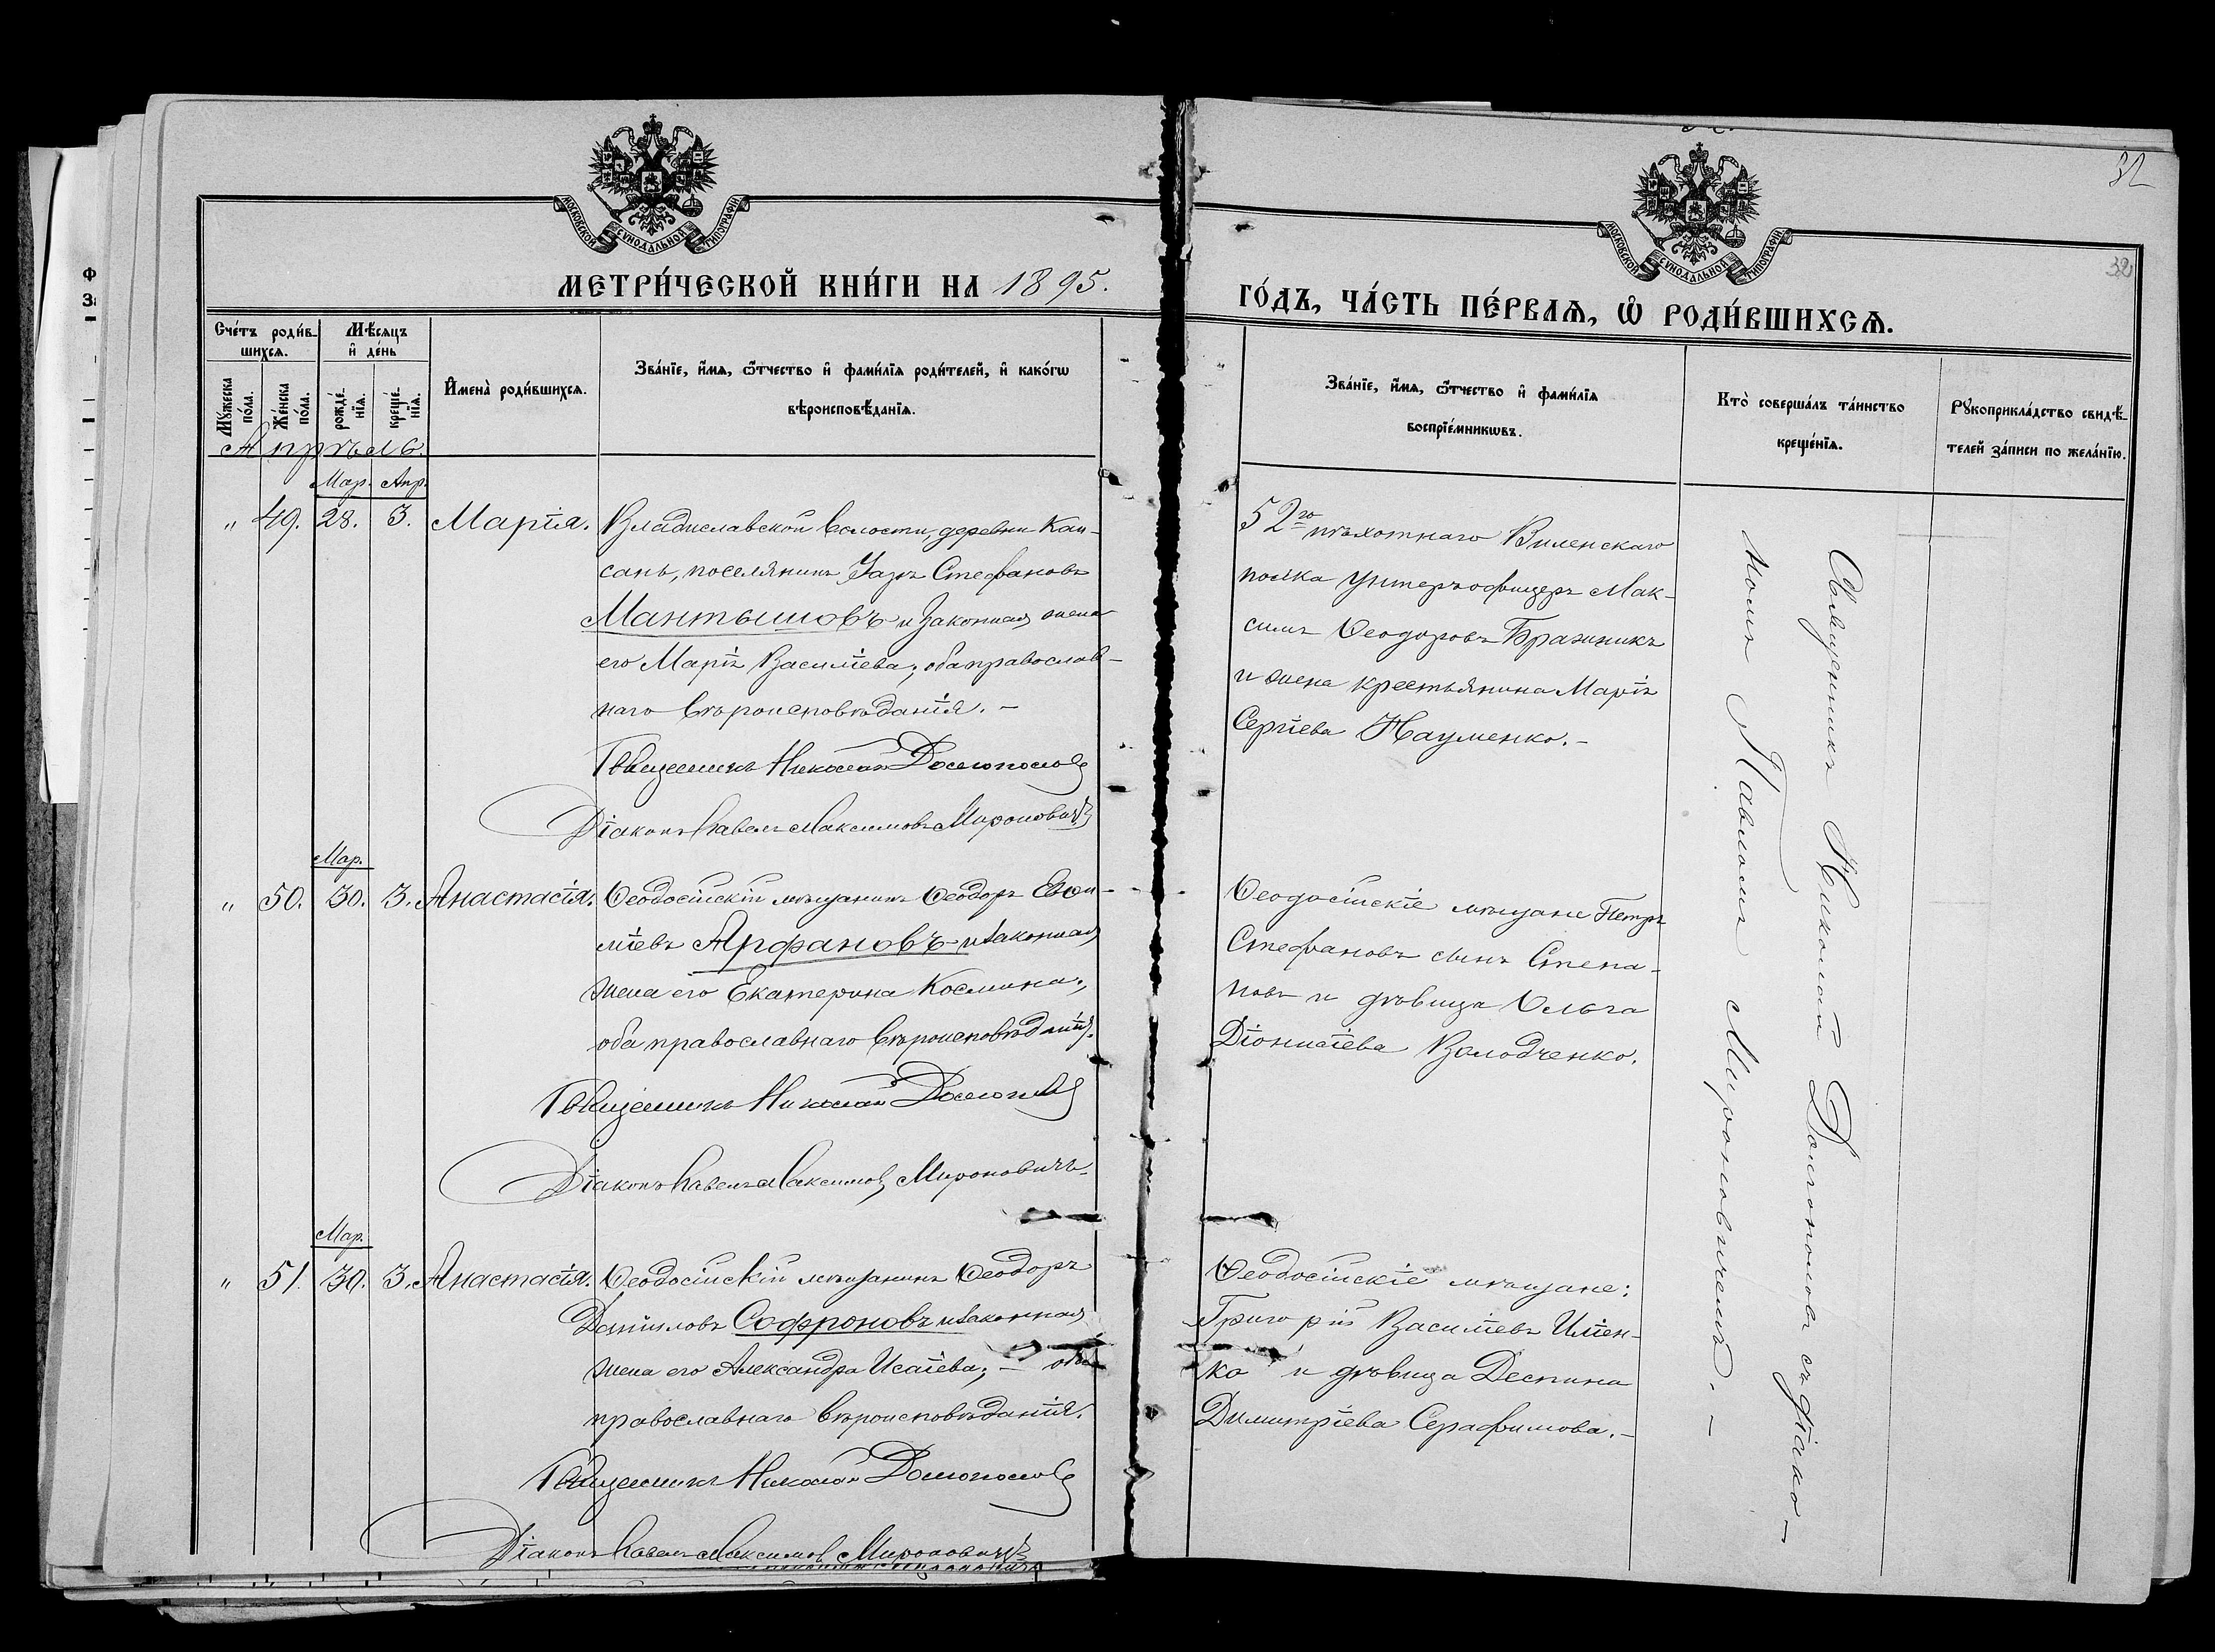 32
32
МОСКОВСКОЙ СѴНОДАЛЬНОЙ ТИПОГРАФІИ
МОСКОВСКОЙ СѴНОДАЛЬНОЙ ТИПОГРАФІИ
МЕТРИ́ЧЕСКОЙ КНИ́ГИ НА 1895.
ГО́ДЪ, ЧА́СТЬ ПЕ́РВАѦ, Ѡ҆ РОДИ́ВШИХСѦ.
Сче́тъ роди́в-
шихсѧ.
Мꙋжеска
по́ла.
Же́нска
по́ла.
Мѣ́сѧцъ
и҆ де́нь
рожде́-
нїѧ.
креще́-
нїѧ.
И҆мена̀ роди́вшихсѧ.
Зва́нїе, и҆́мѧ, ѻ҆́тчество и҆ фами́лїѧ роди́телей, и҆ како́гѡ
вѣроисповѣ́данїѧ.
Зва́нїе, и҆́мѧ, ѻ҆́тчество и҆ фами́лїѧ
воспрїе́мникѡвъ.
Кто̀ соверша́лъ та́инство
креще́нїѧ.
Рꙋкоприкла́дство свидѣ́-
телей за́писи по жела́нїю.
Апрѣль.
Мар. Апр.
" 49. 28. 3. Марія.
Владиславской волости, деревни Кан-
сань, поселянинъ
Стефановъ
Мантышовъ и законная жена
его Марія Василіева; оба православ-
наго вѣроисповѣданія. –
Священникъ Николай Долгополовъ
Діаконъ Павелъ Максимовъ Мироновичъ
52го пѣхотнаго Виленскаго
полка унтеръ офицеръ Мак-
симъ Ѳеодоровъ Бражникъ
и жена крестьянина Марія
Сергіева Науменко. –
Мар.
" 50. 30. 3. Анастасія.
Ѳеодосійскій мѣщанинъ Ѳеодоръ Евѳи-
міевъ Арфановъ и законная
жена его Екатерина Космина;
оба православнаго вѣроисповѣданія.
Священникъ Николай Долгополовъ
Діаконъ Павелъ Максимовъ Мироновичъ
Ѳеодосійскіе мѣщане Петръ
Стефановъ сынъ Степа-
новъ и дѣвица Ольга
Діонисіева Володченко.
Мар.
" 51. 30. 3. Анастасія.
Ѳеодосійскій мѣщанинъ Ѳеодоръ
Даніиловъ Софроновъ и законная
жена его Александра Исаіева; – оба
православнаго вѣроисповѣданія.
Священникъ Николай Долгополовъ
Діаконъ Павелъ Максимовъ Мироновичъ
Ѳеодосійскіе мѣщане:
Григорій Василіевъ Иліен-
ко и дѣвица Деспина
Димитріева Серафимова. –
Священникъ Николай Долгополовъ съ діако-
номъ Павломъ Мироновичемъ. –